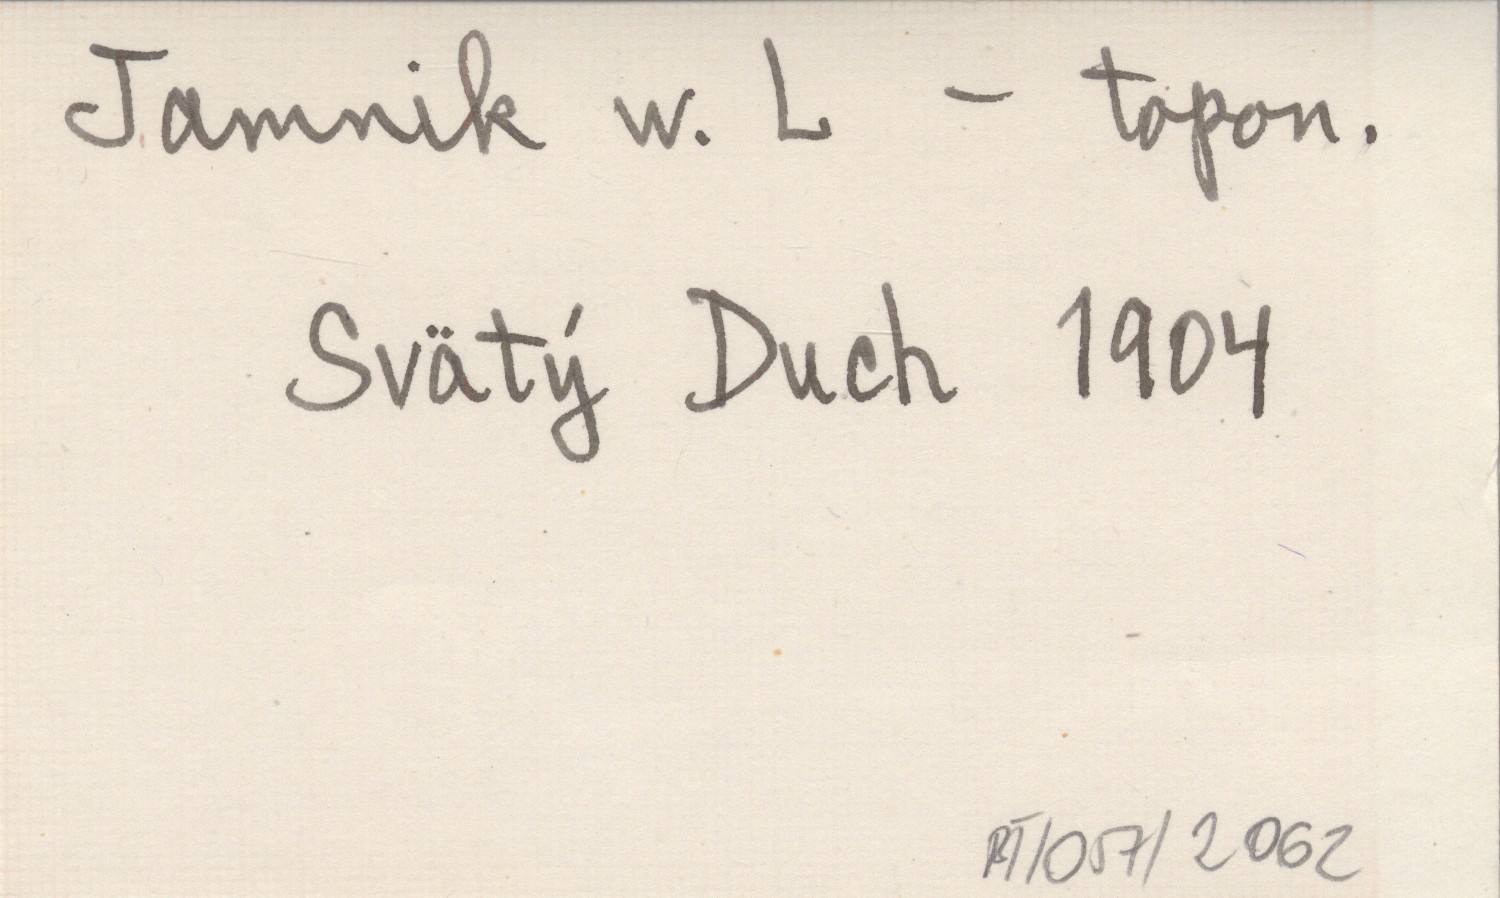 Jamnik w. L - topon.
Svätý Duch 1904
RT/057/2062